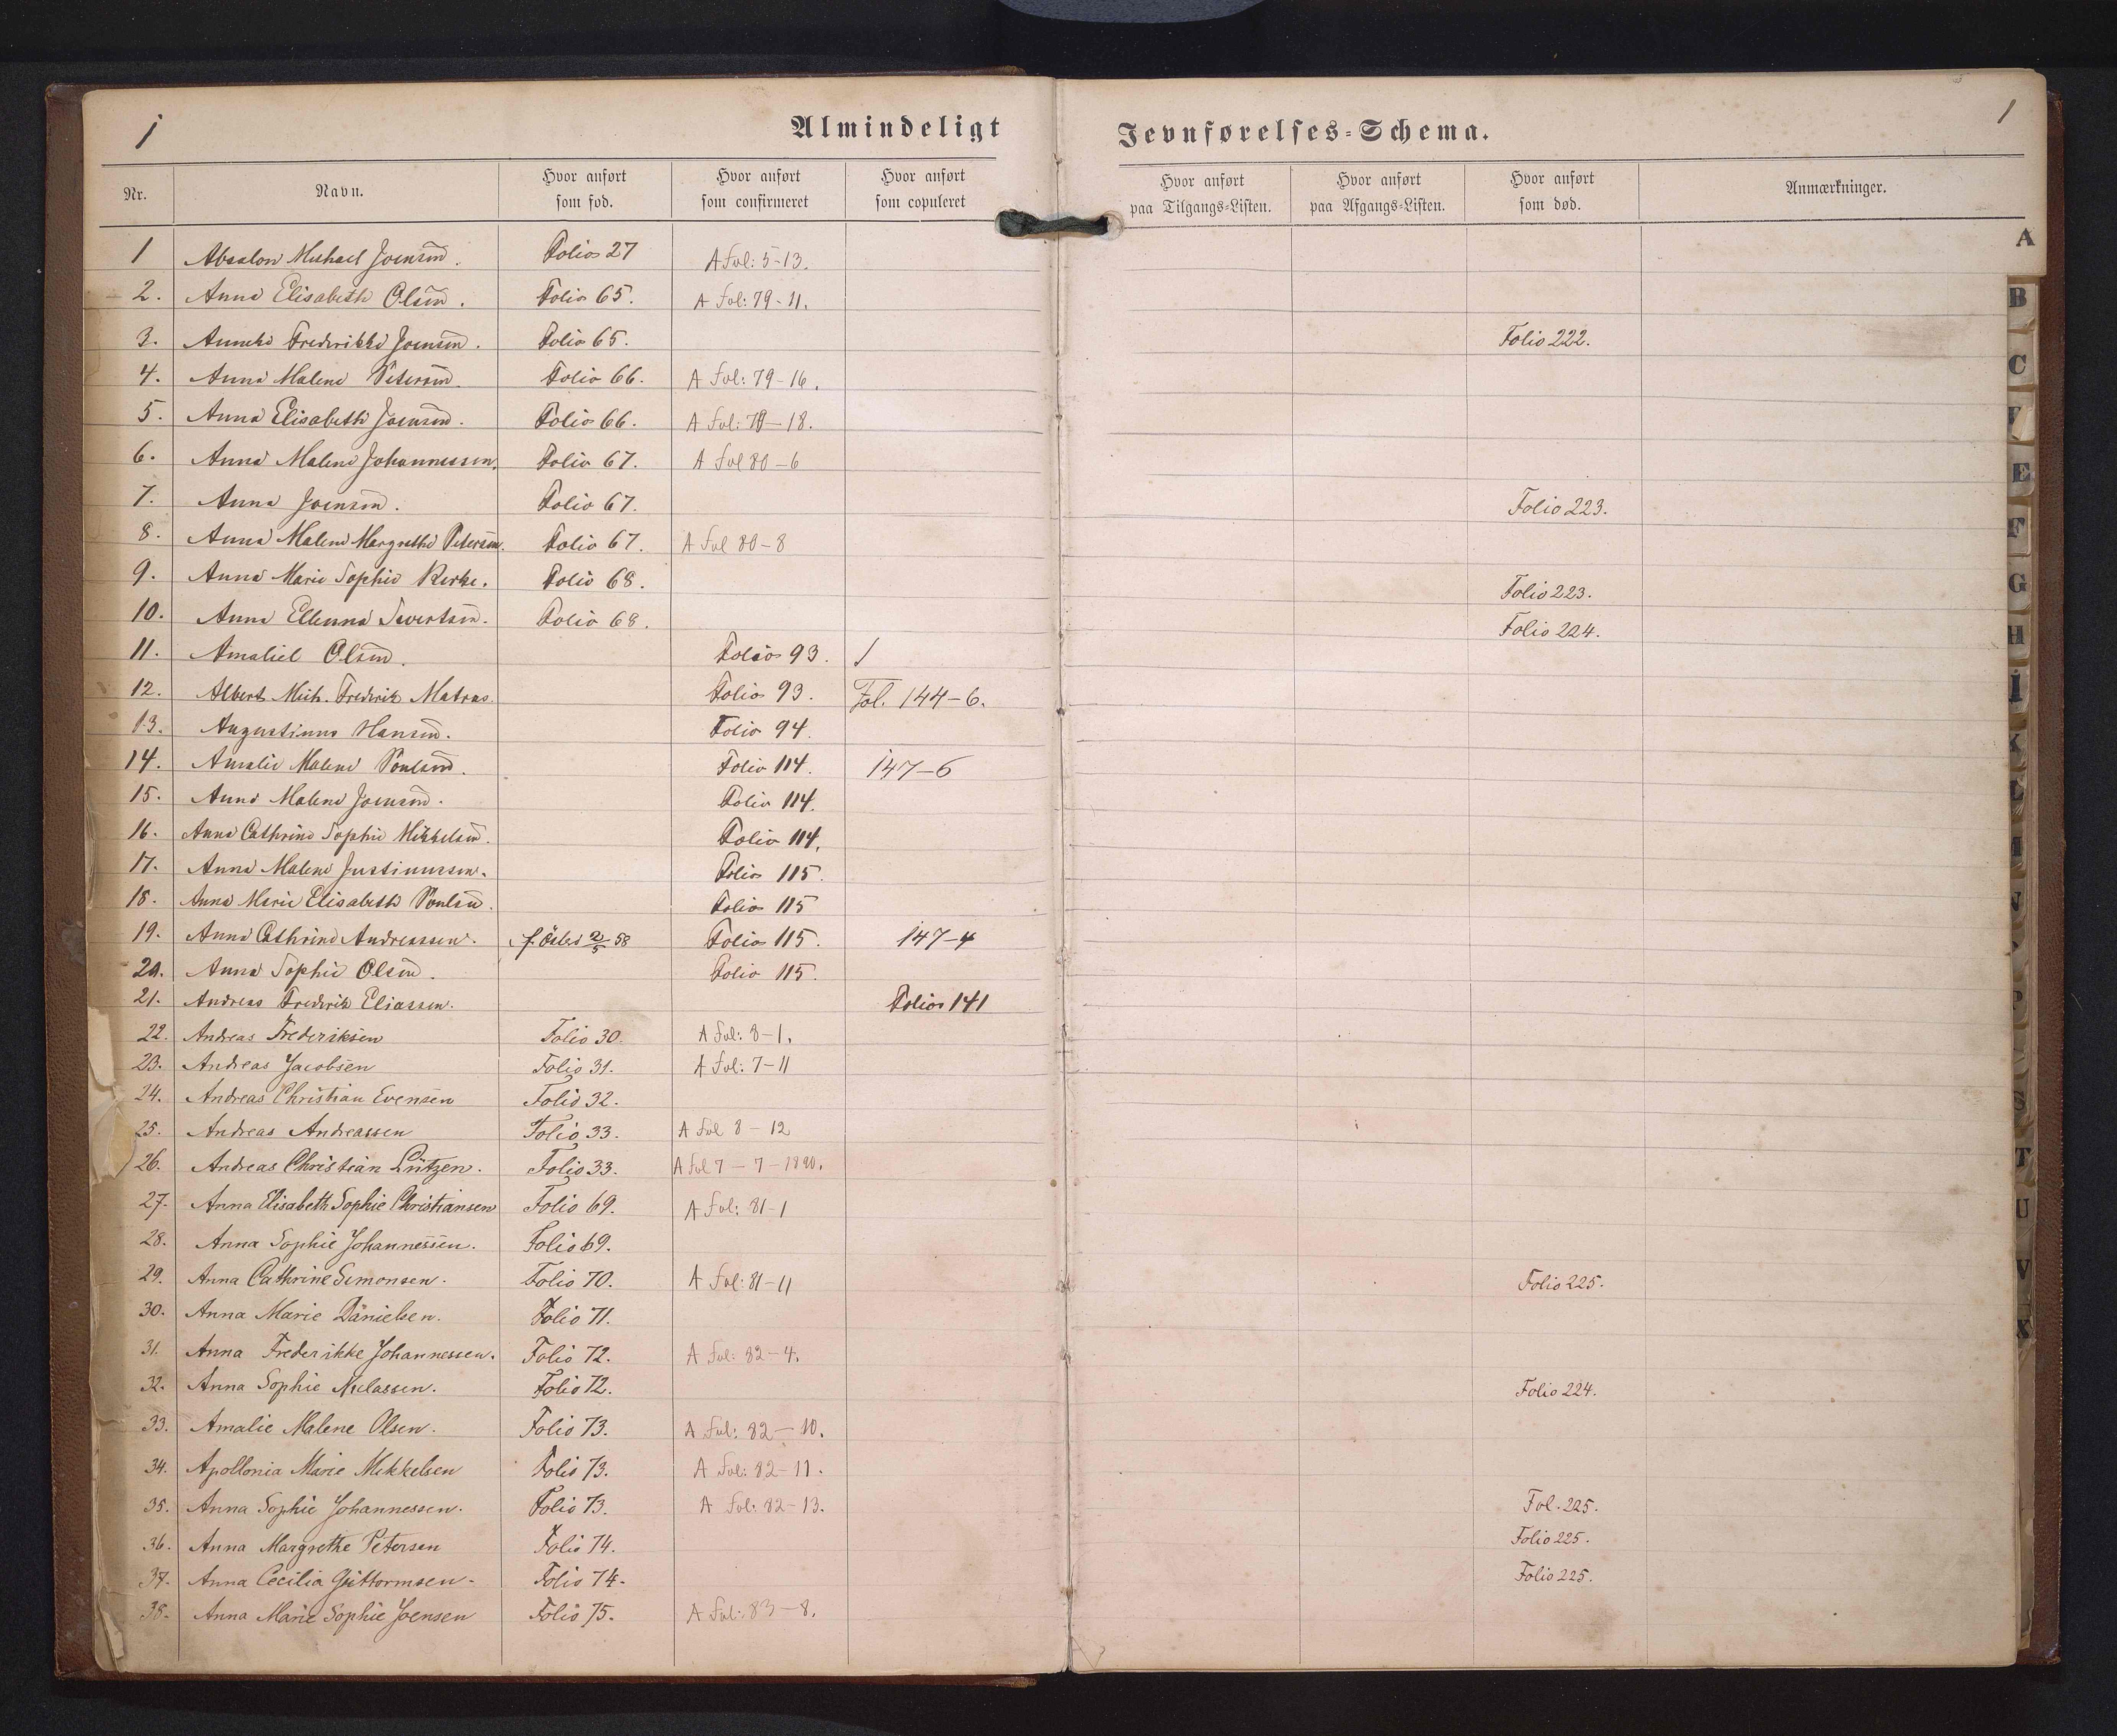 1
Almindeligt Jevnførelses-Schema.
1
Nr. Navn. Hvor anført som fød. Hvor anført som confirmeret Hvor anført som copuleret Hvor anført paa Tilgangs-Listen. Hvor anført paa Afgangs-Listen. Hvor anført som død. Anmærkninger.
1 Absalon Michael Joensen. Folio 27 A Fol: 5-13.
2. Anna Elisabeth Olsen. Folio 65. A Fol: 79-11.
3. Frederikke Joensen. Folio 65. Folio 222.
4. Anna Malene Petersen. Folio 66. A Fol: 79-16.
5. Anna Elisabeth Joensen. Folio 66. A Fol: 79-18.
6. Anna Malene Johannessen. Folio 67. A Fol 80-6
7. Anna Joensen. Folio 67. Folio 223.
8. Anna Malene Margrethe Petersen. Folio 67. A Fol 80-8
9. Anna Marie Sophie Kerke. Folio 68. Folio 223.
10. Anna Ellenna Sivertsen. Folio 68. Folio 224.
11. Amaliel Olsen. Folio 93. /
12. Albert Mich. Frederik Matras. Folio 93. Fol. 144-6.
13. Augustinus Hansen. Folio 94.
14. Amalie Malene Poulsen. Folio 114. 147-6
15. Anna Malene Joensen. Folio 114.
16. Anna Cathrine Sophie Mikkelsen. Folio 114.
17. Anna Malene Justinussen. Folio 115.
18. Anna Marie Elisabeth Poulsen. Folio 115
19. Anna Cathrine Andreassen. f. 2/5 58 Folio 115. 147-4
20. Anna Sophie Olsen. Folio 115.
21. Andreas Frederik Eliassen. Folio 141
22. Andreas Frederiksen Folio 30. A Fol: 8-1.
23. Andreas Jacobsen Folio 31. A Fol: 7-11
24. Andreas Christian Evensen Folio 32.
25. Andreas Andreassen Folio 33. A Fol 8-12
26. Andreas Christian Lützen. Folio 33. A Fol 7-7-1890.
27. Anna Elisabeth Sophie Christiansen Folio 69. A Fol: 81-1
28. Anna Sophie Johannessen. Folio 69.
29. Anna Cathrine Simonsen. Folio 70. A Fol: 81-11 Folio 225.
30. Anna Marie Danielsen. Folio 71.
31. Anna Frederikke Johannessen. Folio 72. A Fol: 82-4.
32. Anna Sophie Nielassen. Folio 72. Folio 224.
33. Amalie Malene Olsen. Folio 73. A Fol: 82-10.
34. Apollonia Marie Mikkelsen Folio 73. A Fol: 82-11.
35. Anna Sophie Johannessen. Folio 73. A Fol: 82-13. Fol. 225.
36. Anna Margrethe Petersen Folio 74. Folio 225.
37. Anna Cecilia Guttormsen. Folio 74. Folio 225.
38. Anna Marie Sophie Joensen Folio 75. A Fol: 83-8.
A
B
C
E
F
G
H
I
K
L
M
N
P
S
T
U
V
X